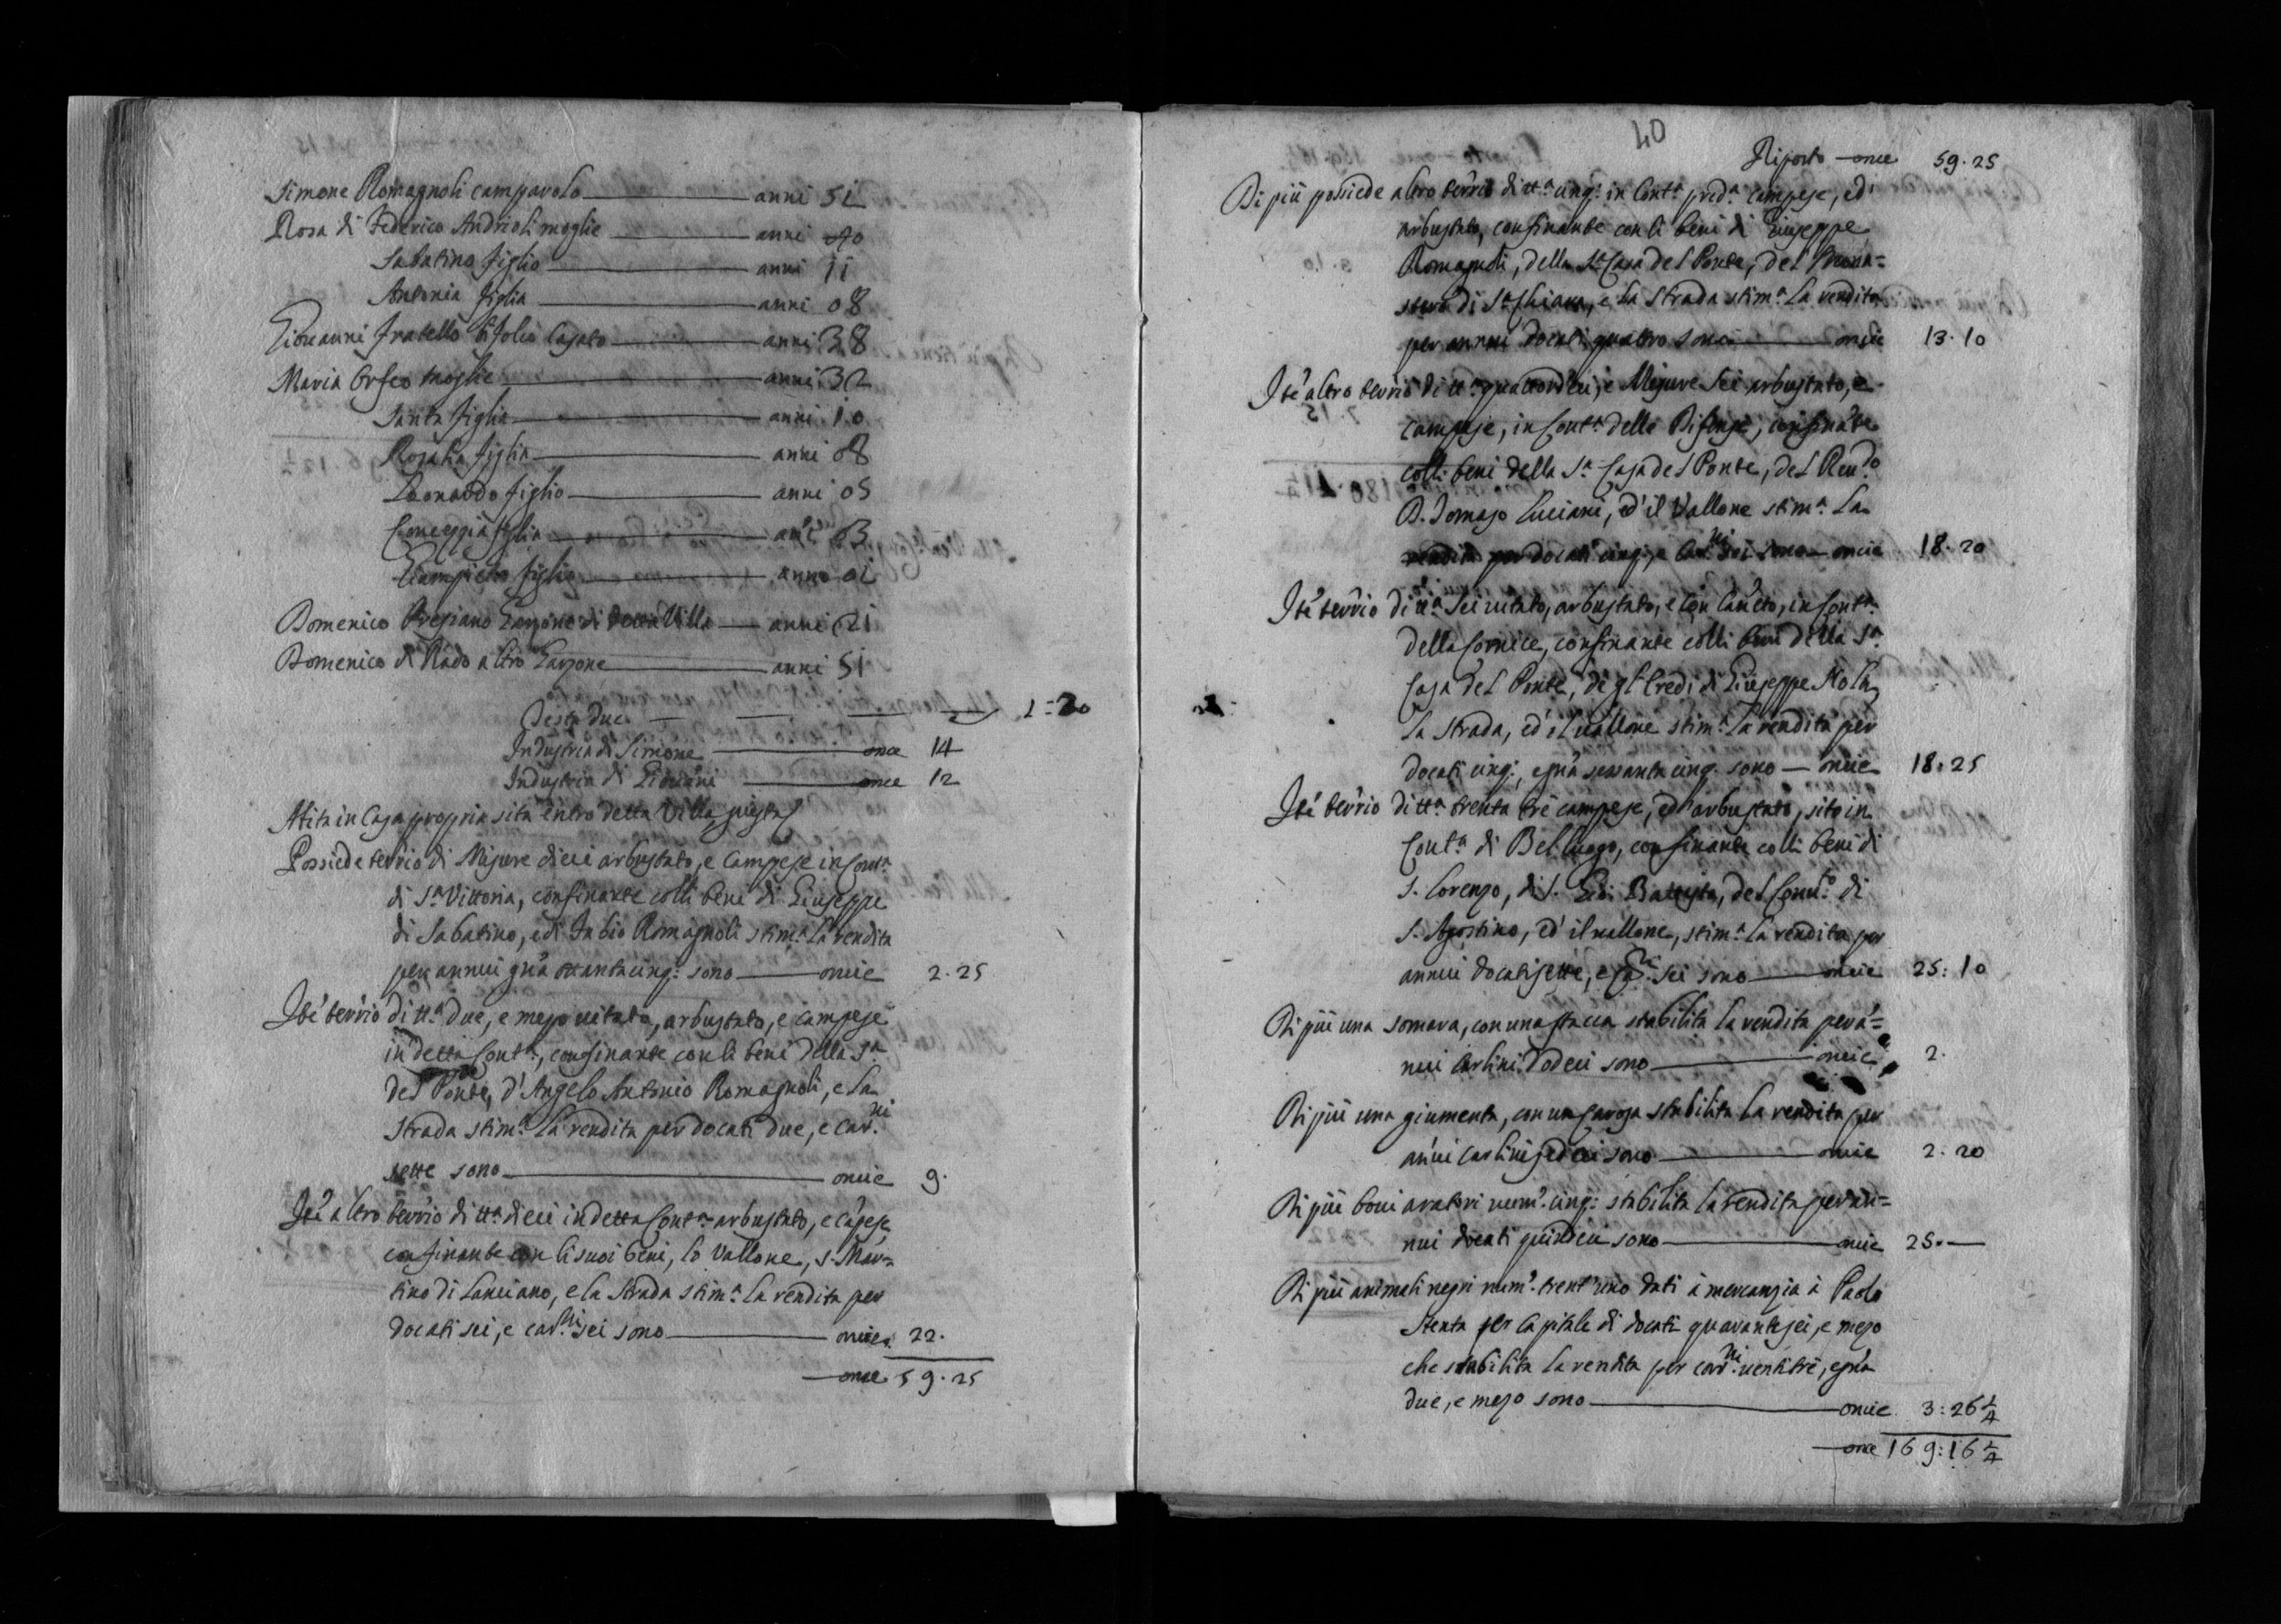 Simone Romagnoli camparolo — anni 51
Rosa di Federico Andrioli moglie — anni 40
Sabatino figlio — anni 11
Antonia figlia — anni 08
Giovanni fratello bifolco casato — anni 38
Maria Orfeo moglie — anni 32
Santa figlia — anni 10
Rosalia figlia — anni 08
Leonardo figlio — anni 05
figlia — anni 03
Giampietro figlio — anno 01
Domenico Garzone di detta Villa — anni 21
Domenico di Nado altro Garzone — anni 51
Teste due — 2 = 20
Industria di Simone — once 14
Industria di Giovãni — once 12
Abita in Casa propria sita entro detta Villa giusta
Possiede terr̃io di Misure dieci arbustato, e Campese in Cont.ª
di S.ª Vittoria, confinante colli beni di Giuseppe
di Sabatino, e di Fabio Romagnoli stim.ª la rendita
per annui gna ottantacinq: sono — oncie 2.25
Itẽ terr̃io di tt.ª due, e mezo vitato, arbustato, e campese
in detta Cont.ª, confinante con li beni della S.ª
del Ponte, d'Angelo Antonio Romagnoli, e la
strada stim.ª la rendita per docati due, e car.ni
sette sono — oncie 9.
Itẽ altro terr̃io di tt.ª dieci in detta Cont.ª arbustato, e cãpese
confinante con li suoi beni, lo Vallone, S. Mar=
tino di Lanciano, e la strada stim.ª la rendita per
docati sei, e car.ni sei sono — oncie 22.
once 59.25
40
Riporto — once 59.25
Di più possiede altro terr̃io di tt.ª cinq: in Cont.ª pred.ª campese, ed'
arbustato, confinante con li beni di Giuseppe
Romagnoli, della S.ª Casa del Ponte, del Mona=
stero di S.ª Chiara, e la Strada stim.ª la rendita
per annui docati quattro sono — oncie 13.10
Itẽ altro terr̃io di tt.ª quattordeci, e Misure sei arbustato, e
campese, in Cont.ª delle Difense, confinãte
colli beni della S.ª Casa del Ponte, del Reu.do
D. Tomaso Luciani, ed' il Vallone stim.ª la
rendita per docati cinq:, e Car.ni sei sono — oncie 18.20
Itẽ terr̃io di tt.ª sei vitato, arbustato, e con Cañeto, in Cont.ª
della Cornice, confinante colli beni della S.ª
Casa del Ponte, de gl'Eredi di Giuseppe Nola,
la strada, ed' il vallone stim.ª la rendita per
docati cinq:, e gna sessantacinq: sono — oncie 18.25
Itẽ terr̃io di tt.ª trenta trè campese, ed' arbustato, sito in
Cont.ª di Belluogo, confinante colli beni di
S. Lorenzo, di S. Gio: Battista, del Conv.to di
S. Agostino, ed' il vallone, stim.ª la rendita per
annui docati sette, e car.ni sei sono — oncie 25:10
Di più una somara, con una stacca stabilita la rendita per ã=
nui Carlini dodeci sono — oncie 2.
Di più una giumenta, con una stabilita la rendita per
añui Carlini sedeci sono — oncie 2.20
Di più bovi aratori num.º cinq: stabilita la rendita per an=
nui docati quindeci sono — oncie 25.—
Di più animali negri num.º trent'uno dati à mercanzia à Paolo
Stenta per Capitale di docati quarantasei, e mezo
che stabilita la rendita per car.ni ventitrè, e gna
due, e mezo sono — oncie 3:26 1/4
once 169:16 1/4